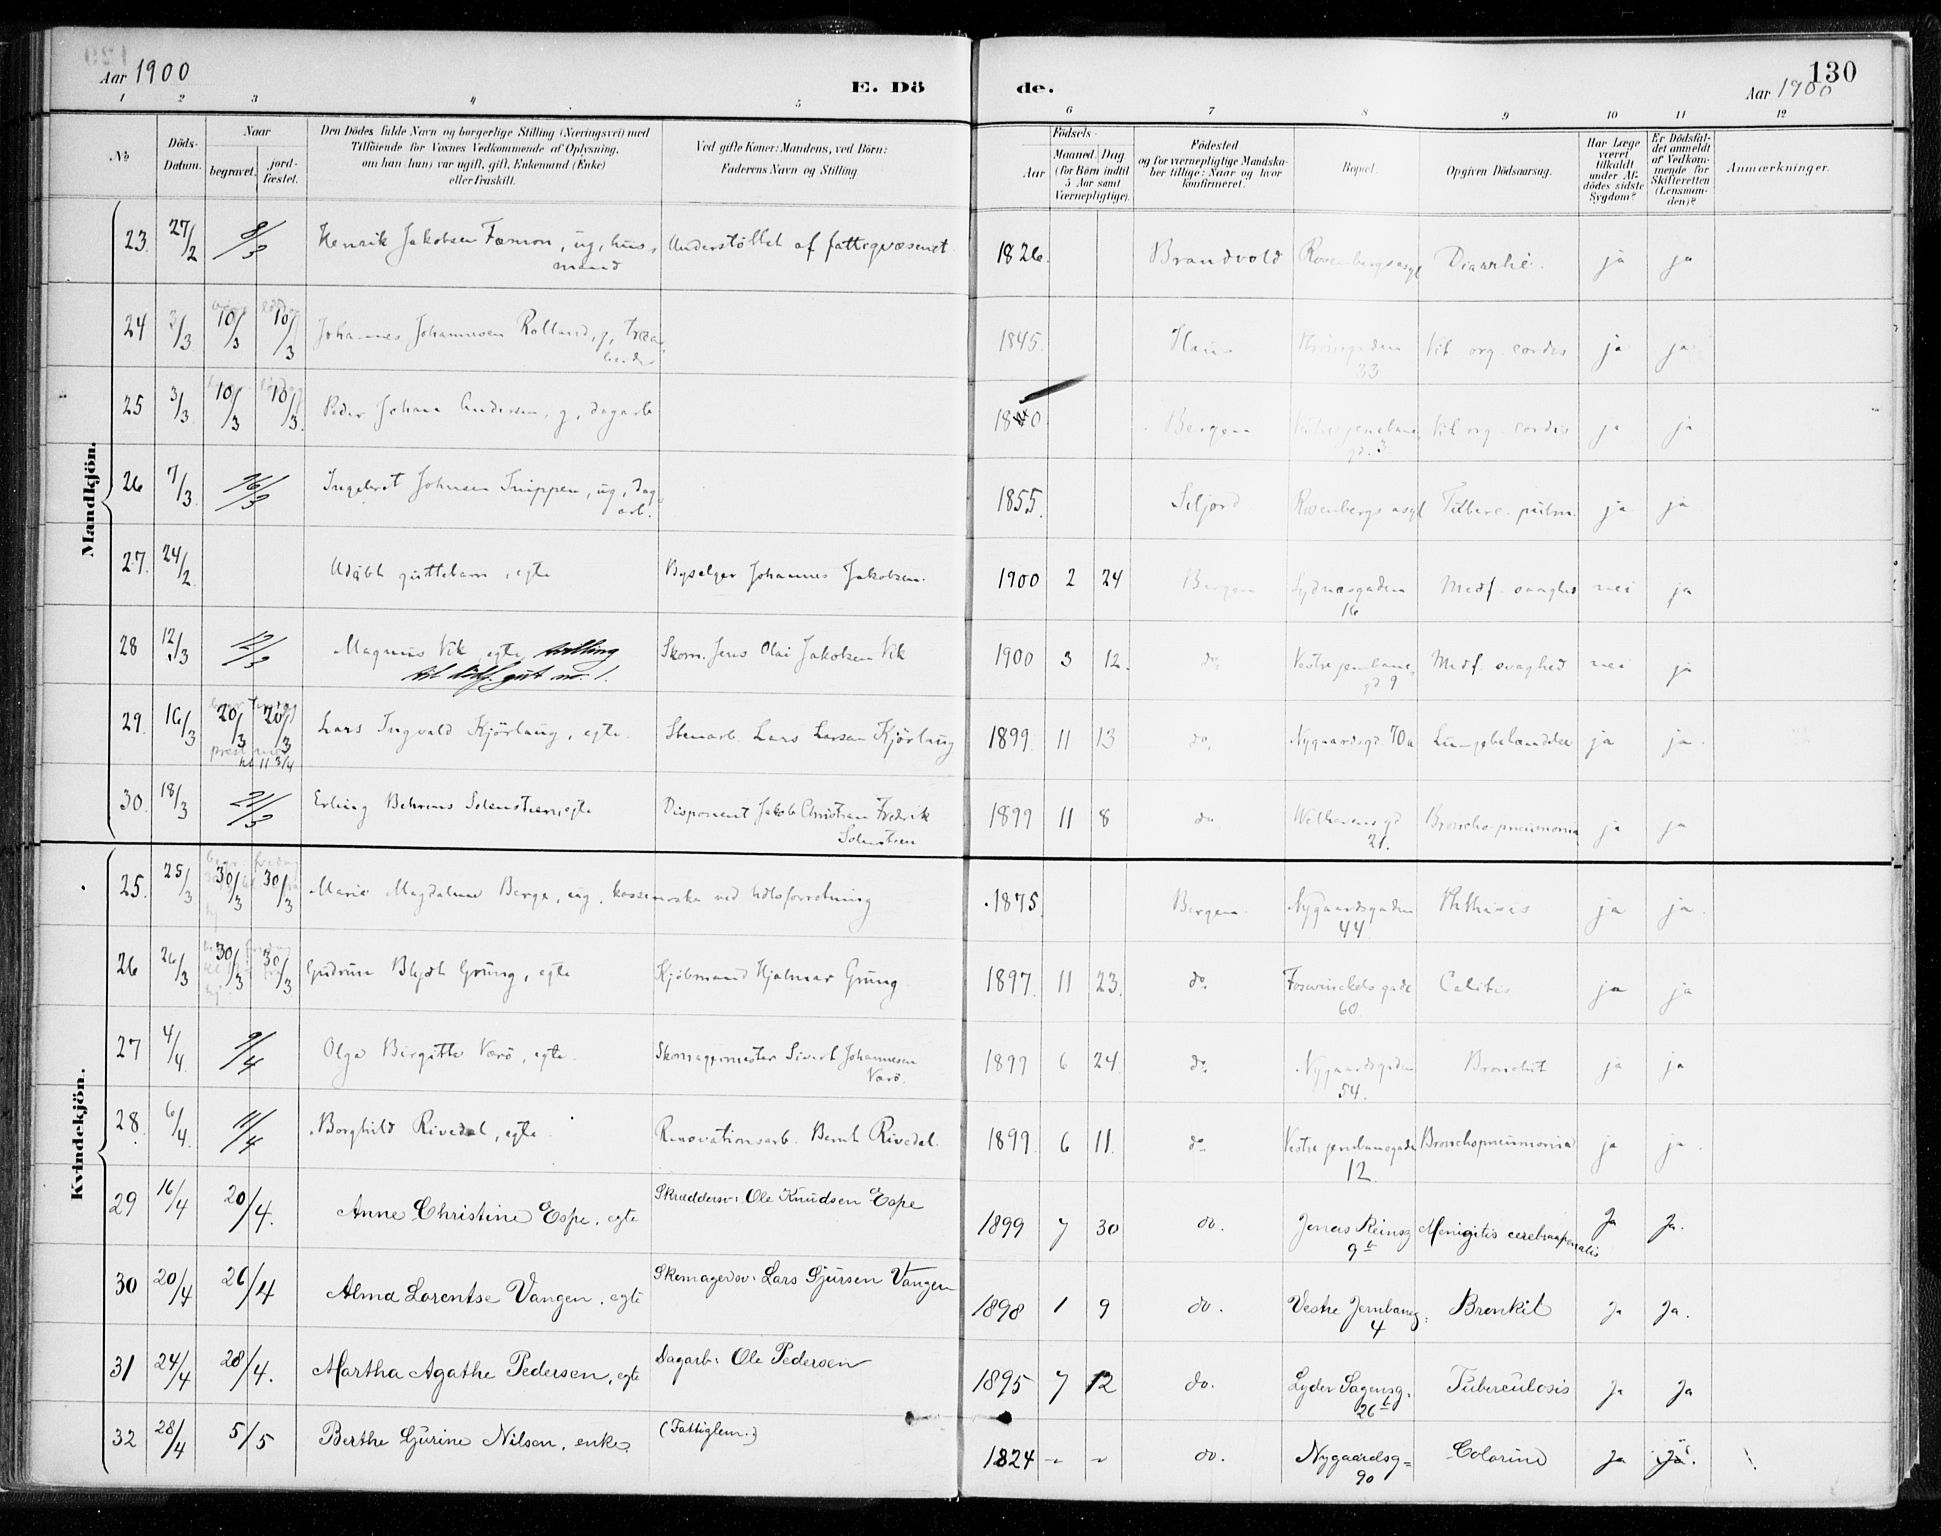 Aar 1900
E. Dö
de.
130
Aar 1900
1 2 3 4 5 6 7 8 9 10 11 12
No
Döds-Datum.
Naar
begravet.
jord-fæstet.
Den Dödes fulde Navn og borgerlige Stilling (Næringsvei) med
Tilföiende for Voxnes Vedkommende af Oplysning,
om han (hun) var ugift, gift, Enkemand (Enke)
eller fraskilt.
Ved gifte Koner: Mandens, ved Börn:
Faderens Navn og Stilling
Födsels-
Aar
Maaned. Dag
(for Börn indtil
5 Aar samt
Værnepligtige).
Födested
og for værnepligtige Mandska-
ber tillige: Naar og hvor
konfirmeret.
Bopæl.
Opgiven Dödsaarsag.
Har Læge
været
tilkaldt
under Af-
dödes sidste
Sygdom?
Er Dödsfal-
det anmeldt
af Vedkom-
mende for
Skifteretten
(Lensman-
den)?
Anmærkninger.
Mandkjön.
23. 27/2 8/3 Henrik Jakobsen Fæmon, ug, hus- Understöttet af fattigvæsenet. 1826. Brandvold Rosenbergs asyl Diarrhé. ja ja
mand
24 3/3 10/3 10/3 Johannes Johannesen Rolland, g, træar- 1845. Haus 33 Vit. org. cordis ja ja
beider
25 3/3 10/3 10/3. Peder Johan Andersen, g, dagarb 1840 Bergen Vestre jernbane- Vit. org. cordis ja ja
gd. 3.
26 7/3 16/3 Ingebret Johnsen Snippen, ug, dag- 1855. Seljord Rosenbergs asyl Tuberc. pulm. ja ja
arb.
27. 24/2 Udöbt guttebarn, egte Byselger Johannes Jakobsen. 1900 2 24 Bergen Sydnæsgaden Medf. svaghed nei ja
16
28 12/3 12/3 Magnus Vik, egte, tvilling Skom. Jens Olai Jakobsen Vik 1900 3 12. do. Vestre jernbane- Medf. svaghed nei ja
gd 9
29. 16/3 20/3 20/3 Lars Ingvald Kjörlaug, egte. Stenarb. Lars Larsen Kjörlaug 1899. 11 13 do. Nygaardsgd. 70a Lungebetændelse ja ja.
30. 18/3 21/3 Erling Behrens Solemstien, egte Disponent Jakob Christian Fredrik 1899 11 8 do Welhavensgd Broncho-pneumonia ja ja
21.
Kvindekjön.
25. 25/3 30/3 30/3 Marie Magdalene Berge, ug, ved 1875. Bergen. Nygaardsgaden Phthisis ja ja.
44
26 26/3 30/3 30/3 Gudrun Blydt Grung, egte Kjöbmand Hjalmar Grung 1897. 11 23. do. Foswinckels gade Colitis ja ja
60.
27 4/4. 9/4 Olga Birgitte Værö, egte. Skomagermester Sivert Johannesen 1899 6 24. do. Nygaardsgaden Bronchit ja ja
Værö. 54.
28. 6/4. 11/4 Borghild Rivedal, egte. Renovationsarb. Bernt Rivedal. 1899. 6 11. do Vestre jernbanegade Bronchopneumonia ja ja.
12.
29 16/4 20/4. Anne Christine Espe, egte Skræddersv: Ole Knudsen Espe 1899 7 30 do. Jonas Reinsg Ja Ja.
9b
30 20/4 26/4 Alma Lorentse Vangen, egte Skomagersv: Lars Gjursen Vangen 1898 1 9 do. Vestre Jernbaneg. Bronkit Ja Ja.
4
31 24/4 28/4. Martha Agathe Pedersen, egte Dagarb: Ole Pedersen 1895 7 12 do. Lyder Sagensg. Tuberculosis Ja Ja
26b
32 28/4 5/5 Berthe Gurine Nilsen, enke. (Fattiglem.) 1824 do. Nygaardsg= Ja Ja.
90